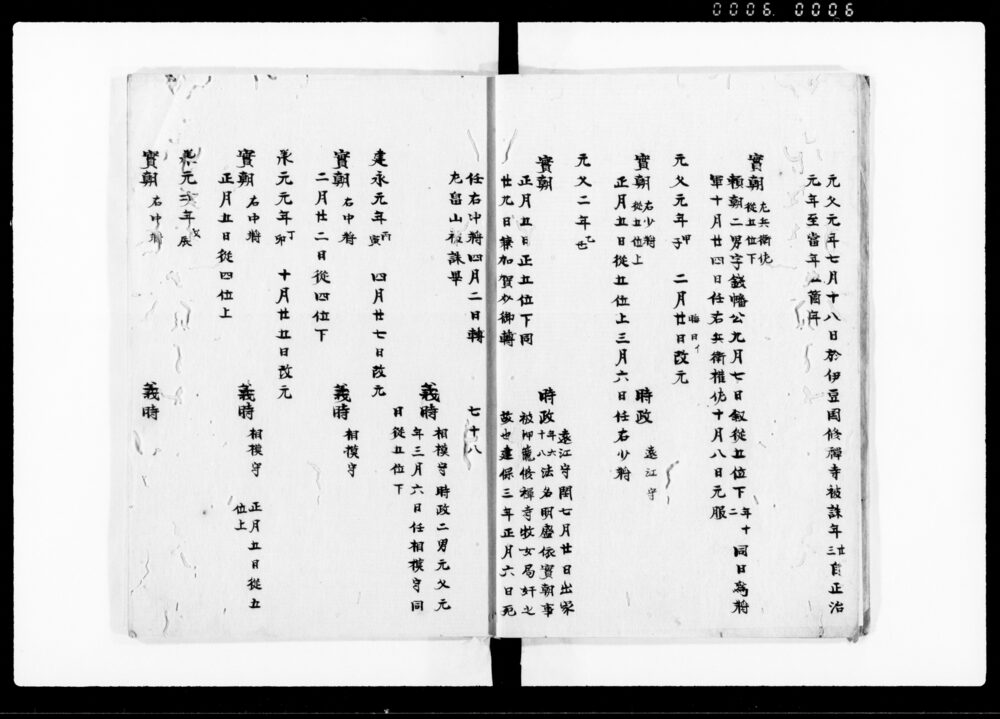 0006 0006
元久元年七月十八日於伊豆国修禅寺被誅年廿三自正治
元年至當年 箇年
實朝 左兵衛佐 從五位下
頼朝二男字 幡公九月七日叙從五位下年十二同日為将
軍十月廿四日任右兵衛權佐十月八日元服
元久元年甲子 二月廿日改元
實朝 右少将 從五位上 時政 遠江守
正月五日從五位上三月六日任右少将
元久二年乙丑
實朝 時政 遠江守閏七月廿日出家
年六十八法名明盛依實朝事
正月五日正五位下同 被押籠修禅寺牧女局奸之
廿九日兼加賀 轉 故也建保三年正月六日死
任右中将四月二日轉 七十八
畠山 被誅畢
建永元年丙寅 四月廿七日改元
實朝 右中将 義時 相模守時政二男元久元
年三月六日任相模守同
日從五位下
二月廿二日從四位下
承元元年丁卯 十月廿五日改元
實朝 右中将 義時 相模守
正月五日從四位上
承元二年戊辰
實朝 右中将 義時 相模守 正月五日從五
位上
義時